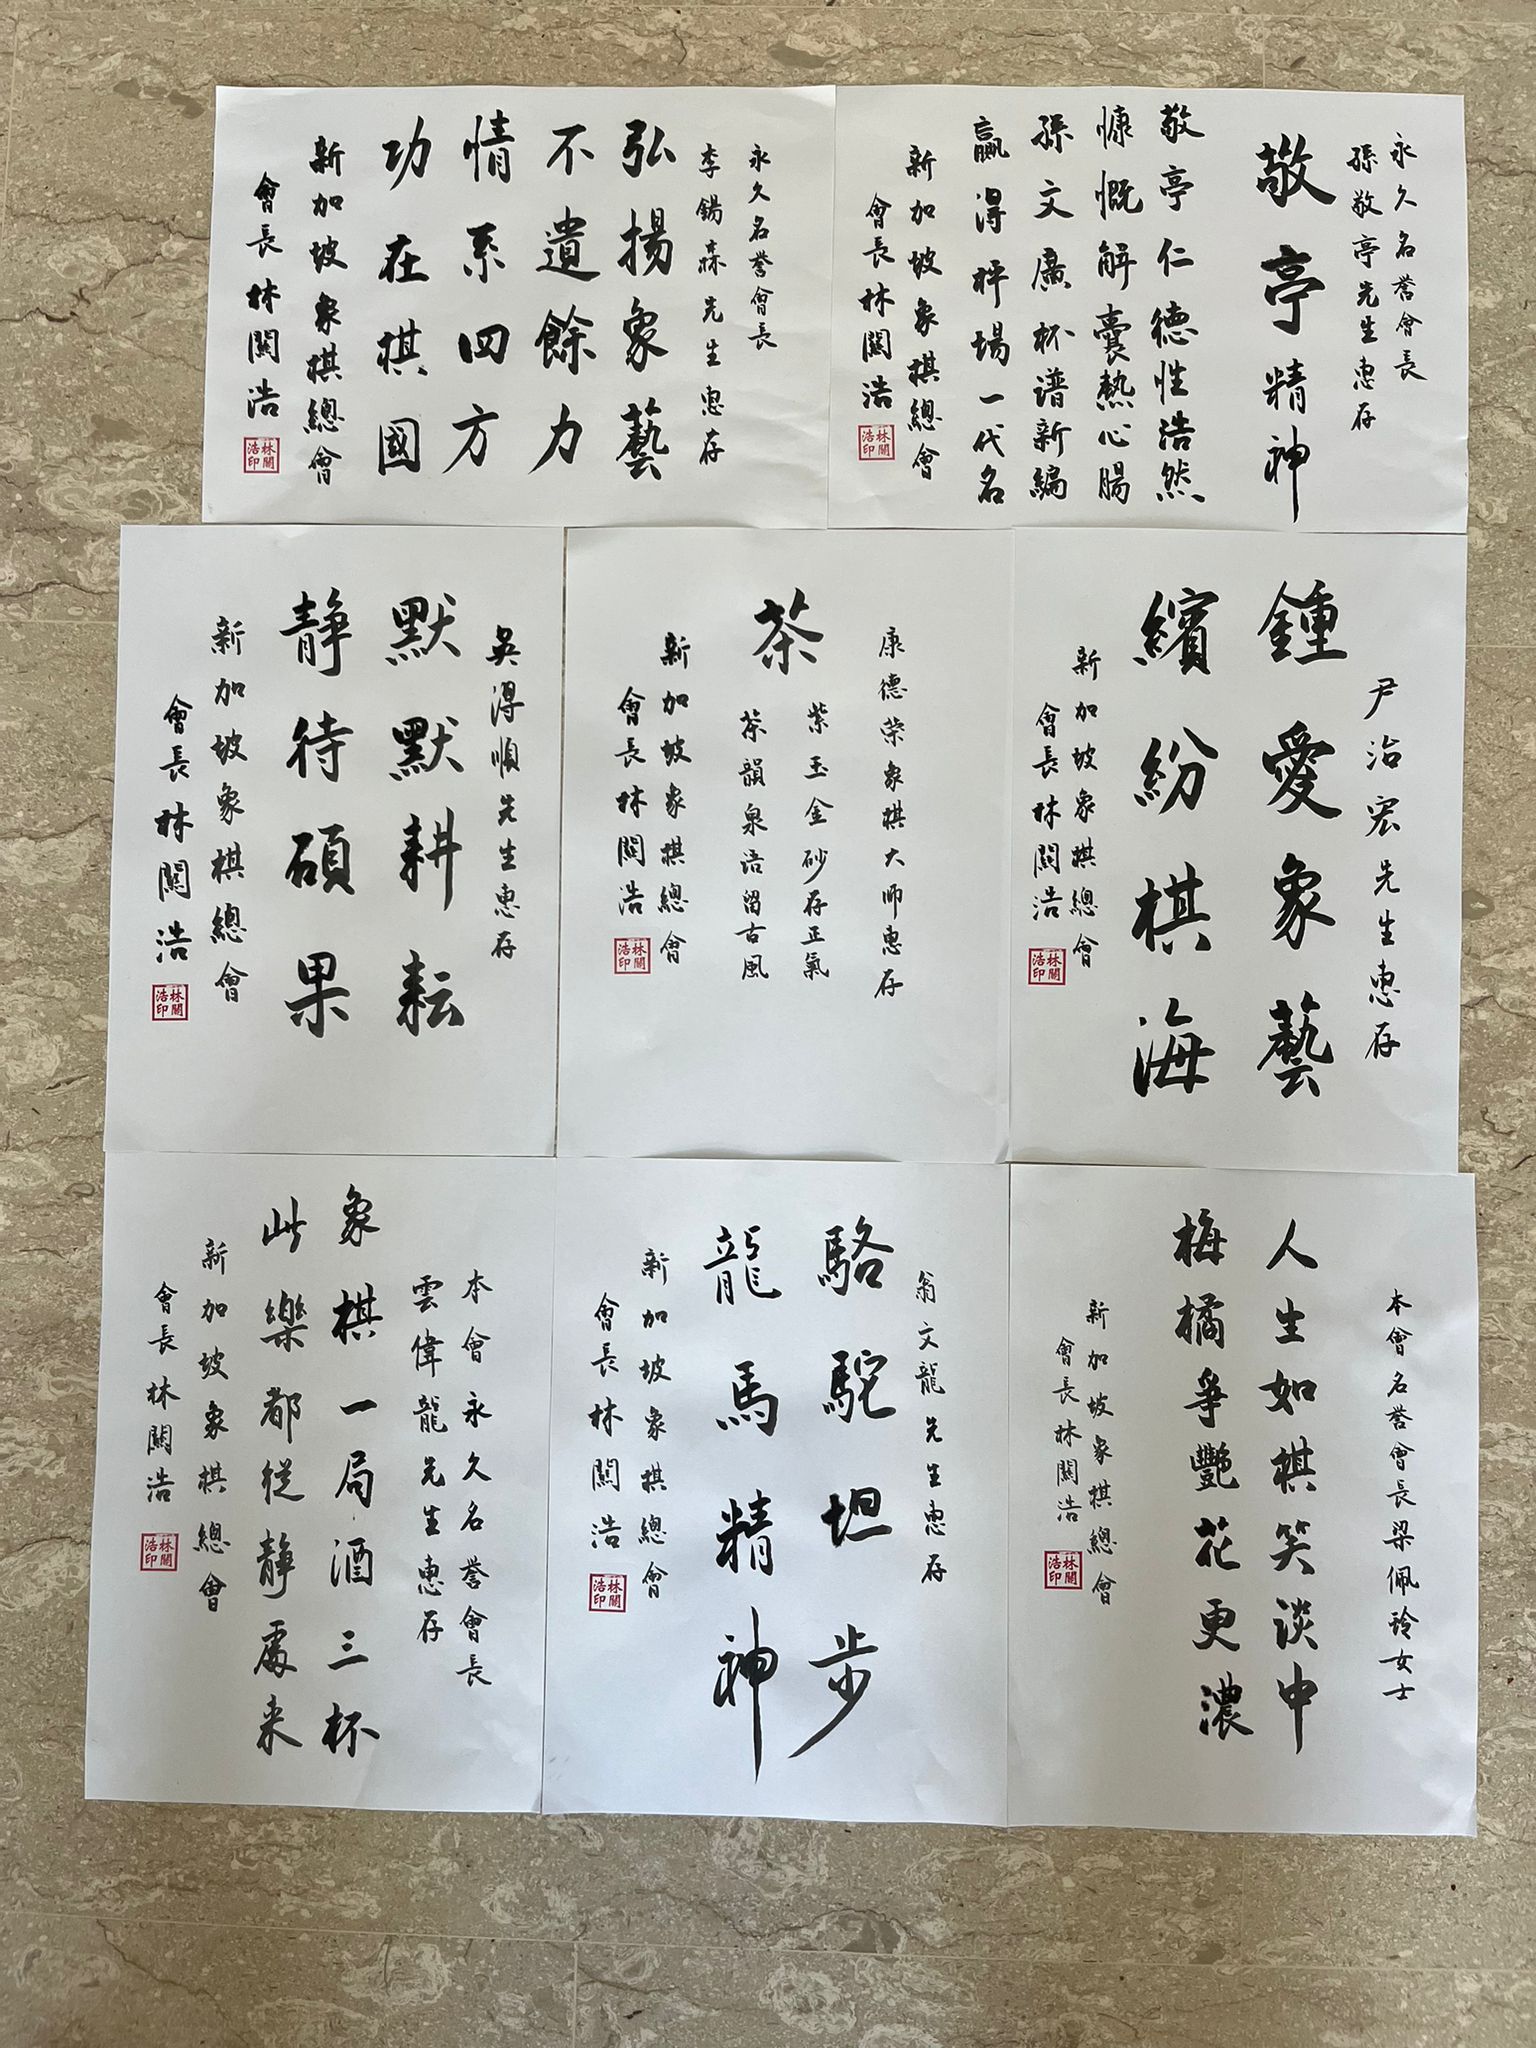 永久名譽會長
孫敬亭先生惠存
敬亭精神
敬亭仁德性浩然
慷慨解囊熱心腸
孫文廣杯譜新編
贏得祥場一代名
新加坡象棋總會
會長林關浩
林關浩印
永久名譽會長
李錫森先生惠存
弘揚象藝
不遺餘力
情系四方
功在棋國
新加坡象棋總會
會長林關浩
林關浩印
尹治宏先生惠存
鍾愛象藝
繽紛棋海
新加坡象棋總會
會長林關浩
林關浩印
康德荣象棋大师惠存
茶
紫玉金砂存正氣
茶韻泉语留古風
新加坡象棋總會
會長林關浩
林關浩印
吳得順先生惠存
默默耕耘
靜待碩果
新加坡象棋總會
會長林關浩
林關浩印
本會名譽會長梁佩玲女士
人生如棋笑淡中
梅橘爭艷花更濃
新加坡象棋總會
會長林關浩
林關浩印
翁文龍先生惠存
駱駝坦步
龍馬精神
新加坡象棋總會
會長林關浩
林關浩印
本會永久名譽會長
雲偉龍先生惠存
象棋一局酒三杯
此樂都從靜處来
新加坡象棋總會
會長林關浩
林關浩印